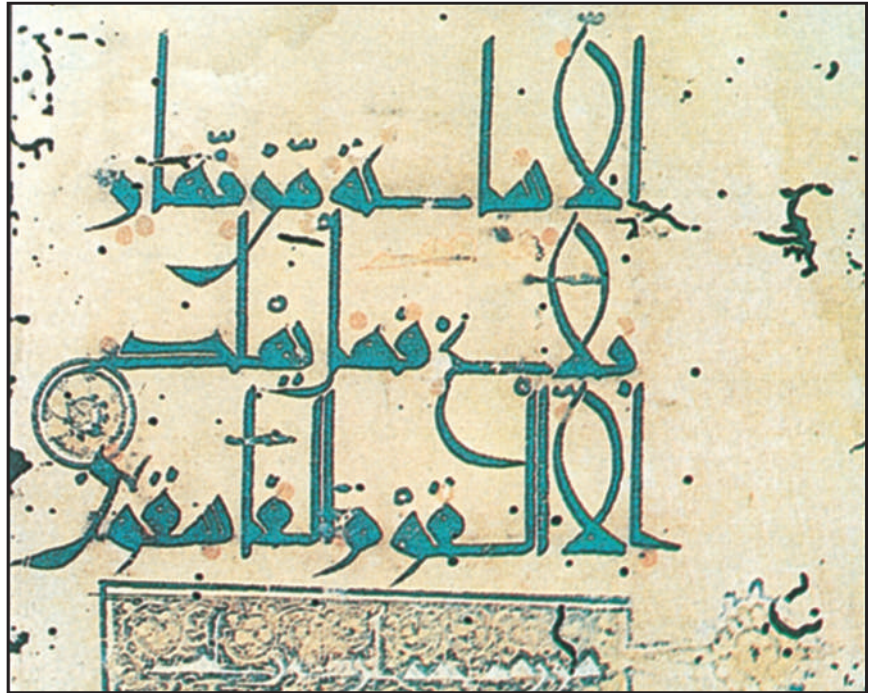 الّا ساعة مّن نّهار
بلاغ فهل يهلك
الّا القوم الفاسقون